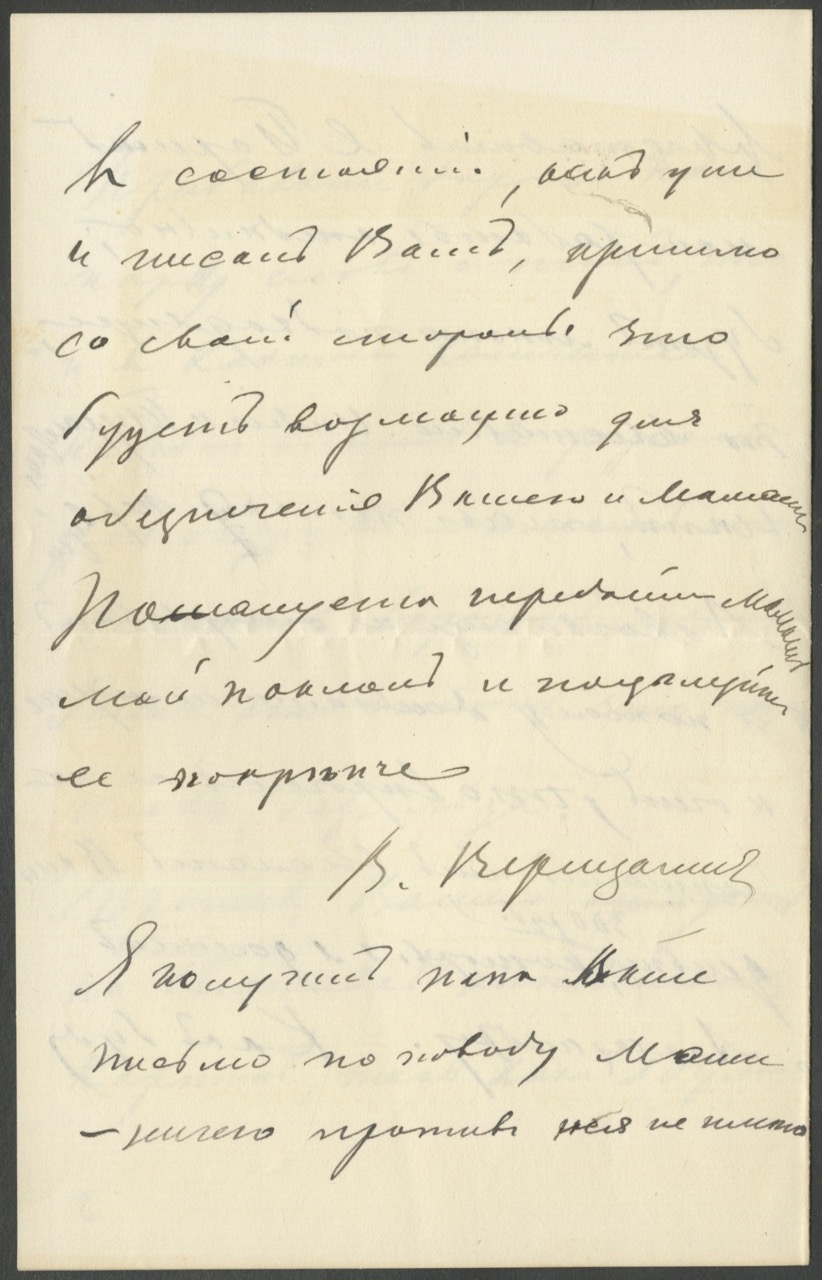 въ состояніи, какъ уже
и писалъ Вамъ, принимю
со своей стороны что
будетъ возможно для
обезпеченія Вашего и Мамаши
Пожалуйста передайте Мамаше
мой поклонъ и поцѣлуйте
ее покрѣпче
В. Верещагинъ
Я получилъ папа Ваше
письмо по поводу Маши
– ничего противъ нея не имею